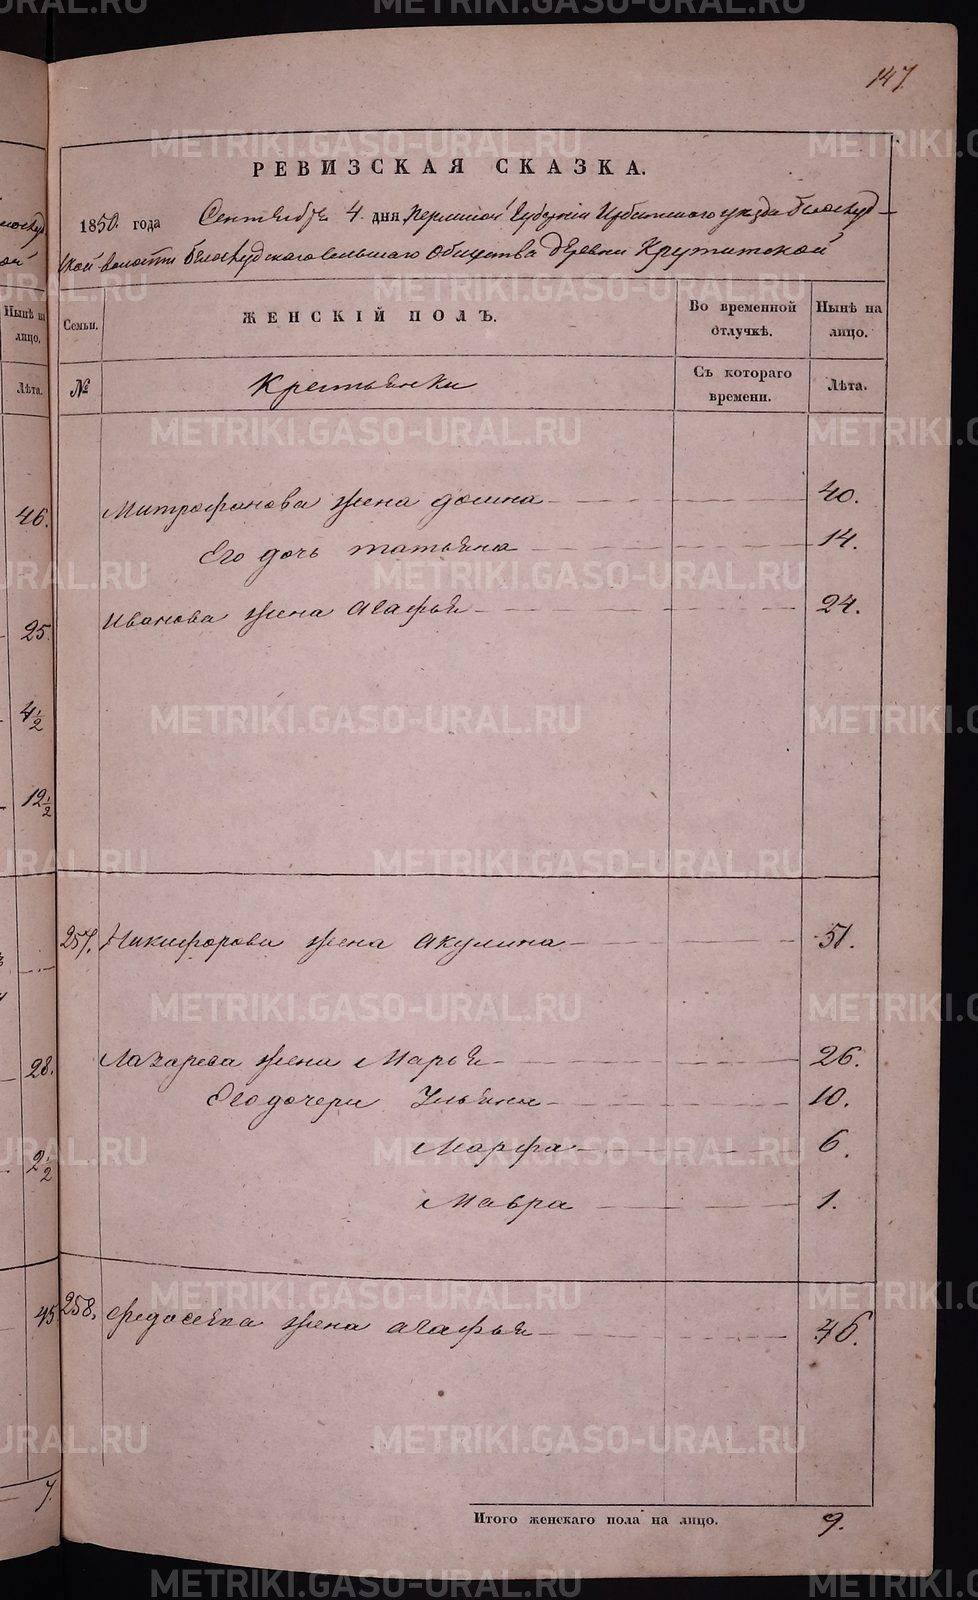 147
РЕВИЗСКАЯ СКАЗКА.
1850 года Сентября 4 дня, Пермской Губернiи Ирбитскаго уезда Белослуд-
ской волости Белослудскаго сельскаго общества деревни Крутитской
Семьи.
ЖЕНСКІЙ ПОЛЪ.
Во временной отлучкѣ.
Нынѣ на лицо.
№
Крестьянки
Съ котораго времени.
Лѣта.
Митрофанова жена Домна 40.
Его дочь Татьяна 14.
Иванова жена Агафья 24.
257. Никифорова жена Акулина 51.
Лазарева жена Марья 26.
Его дочери Ульяна 10.
Марфа 6.
Мавра 1.
258. Федосеява жена Агафья 46.
Итого женскаго пола на лицо. 9.
Нынѣ на лицо,
Лѣта.
46.
25.
4 1/2
12 1/2
28.
2 1/2
45
7.
METRIKI.GASO-URAL.RU